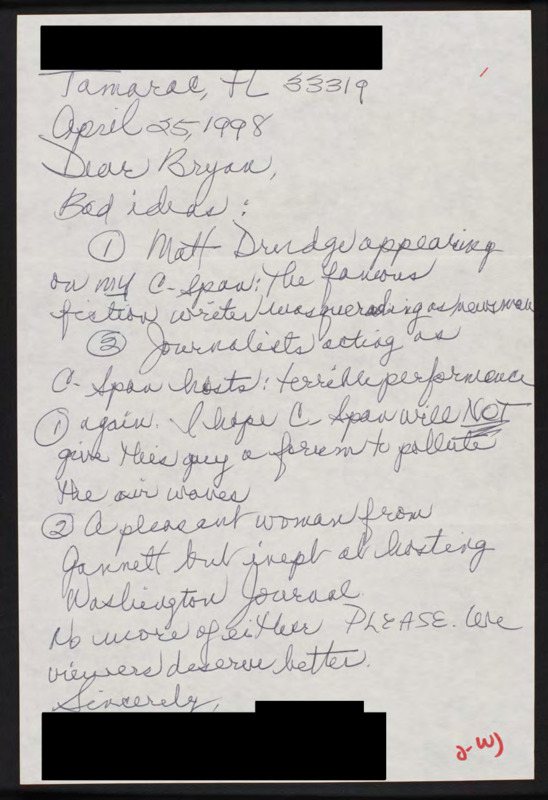 Tamarac, FL 33319
April 25, 1998
Dear Bryan,
Bad ideas:
① Matt Drudge appearing
on my C-Span: the famous
fiction writer masquerading as newsman
② Journalists acting as
C-Span hosts: terrible performance
① again. I hope C-Span will NOT
give this guy a forum to pollute
the air waves
② A pleasant woman from
Gannett but inept at hosting
Washington Journal.
No more of either PLEASE. We
viewers deserve better.
Sincerely,